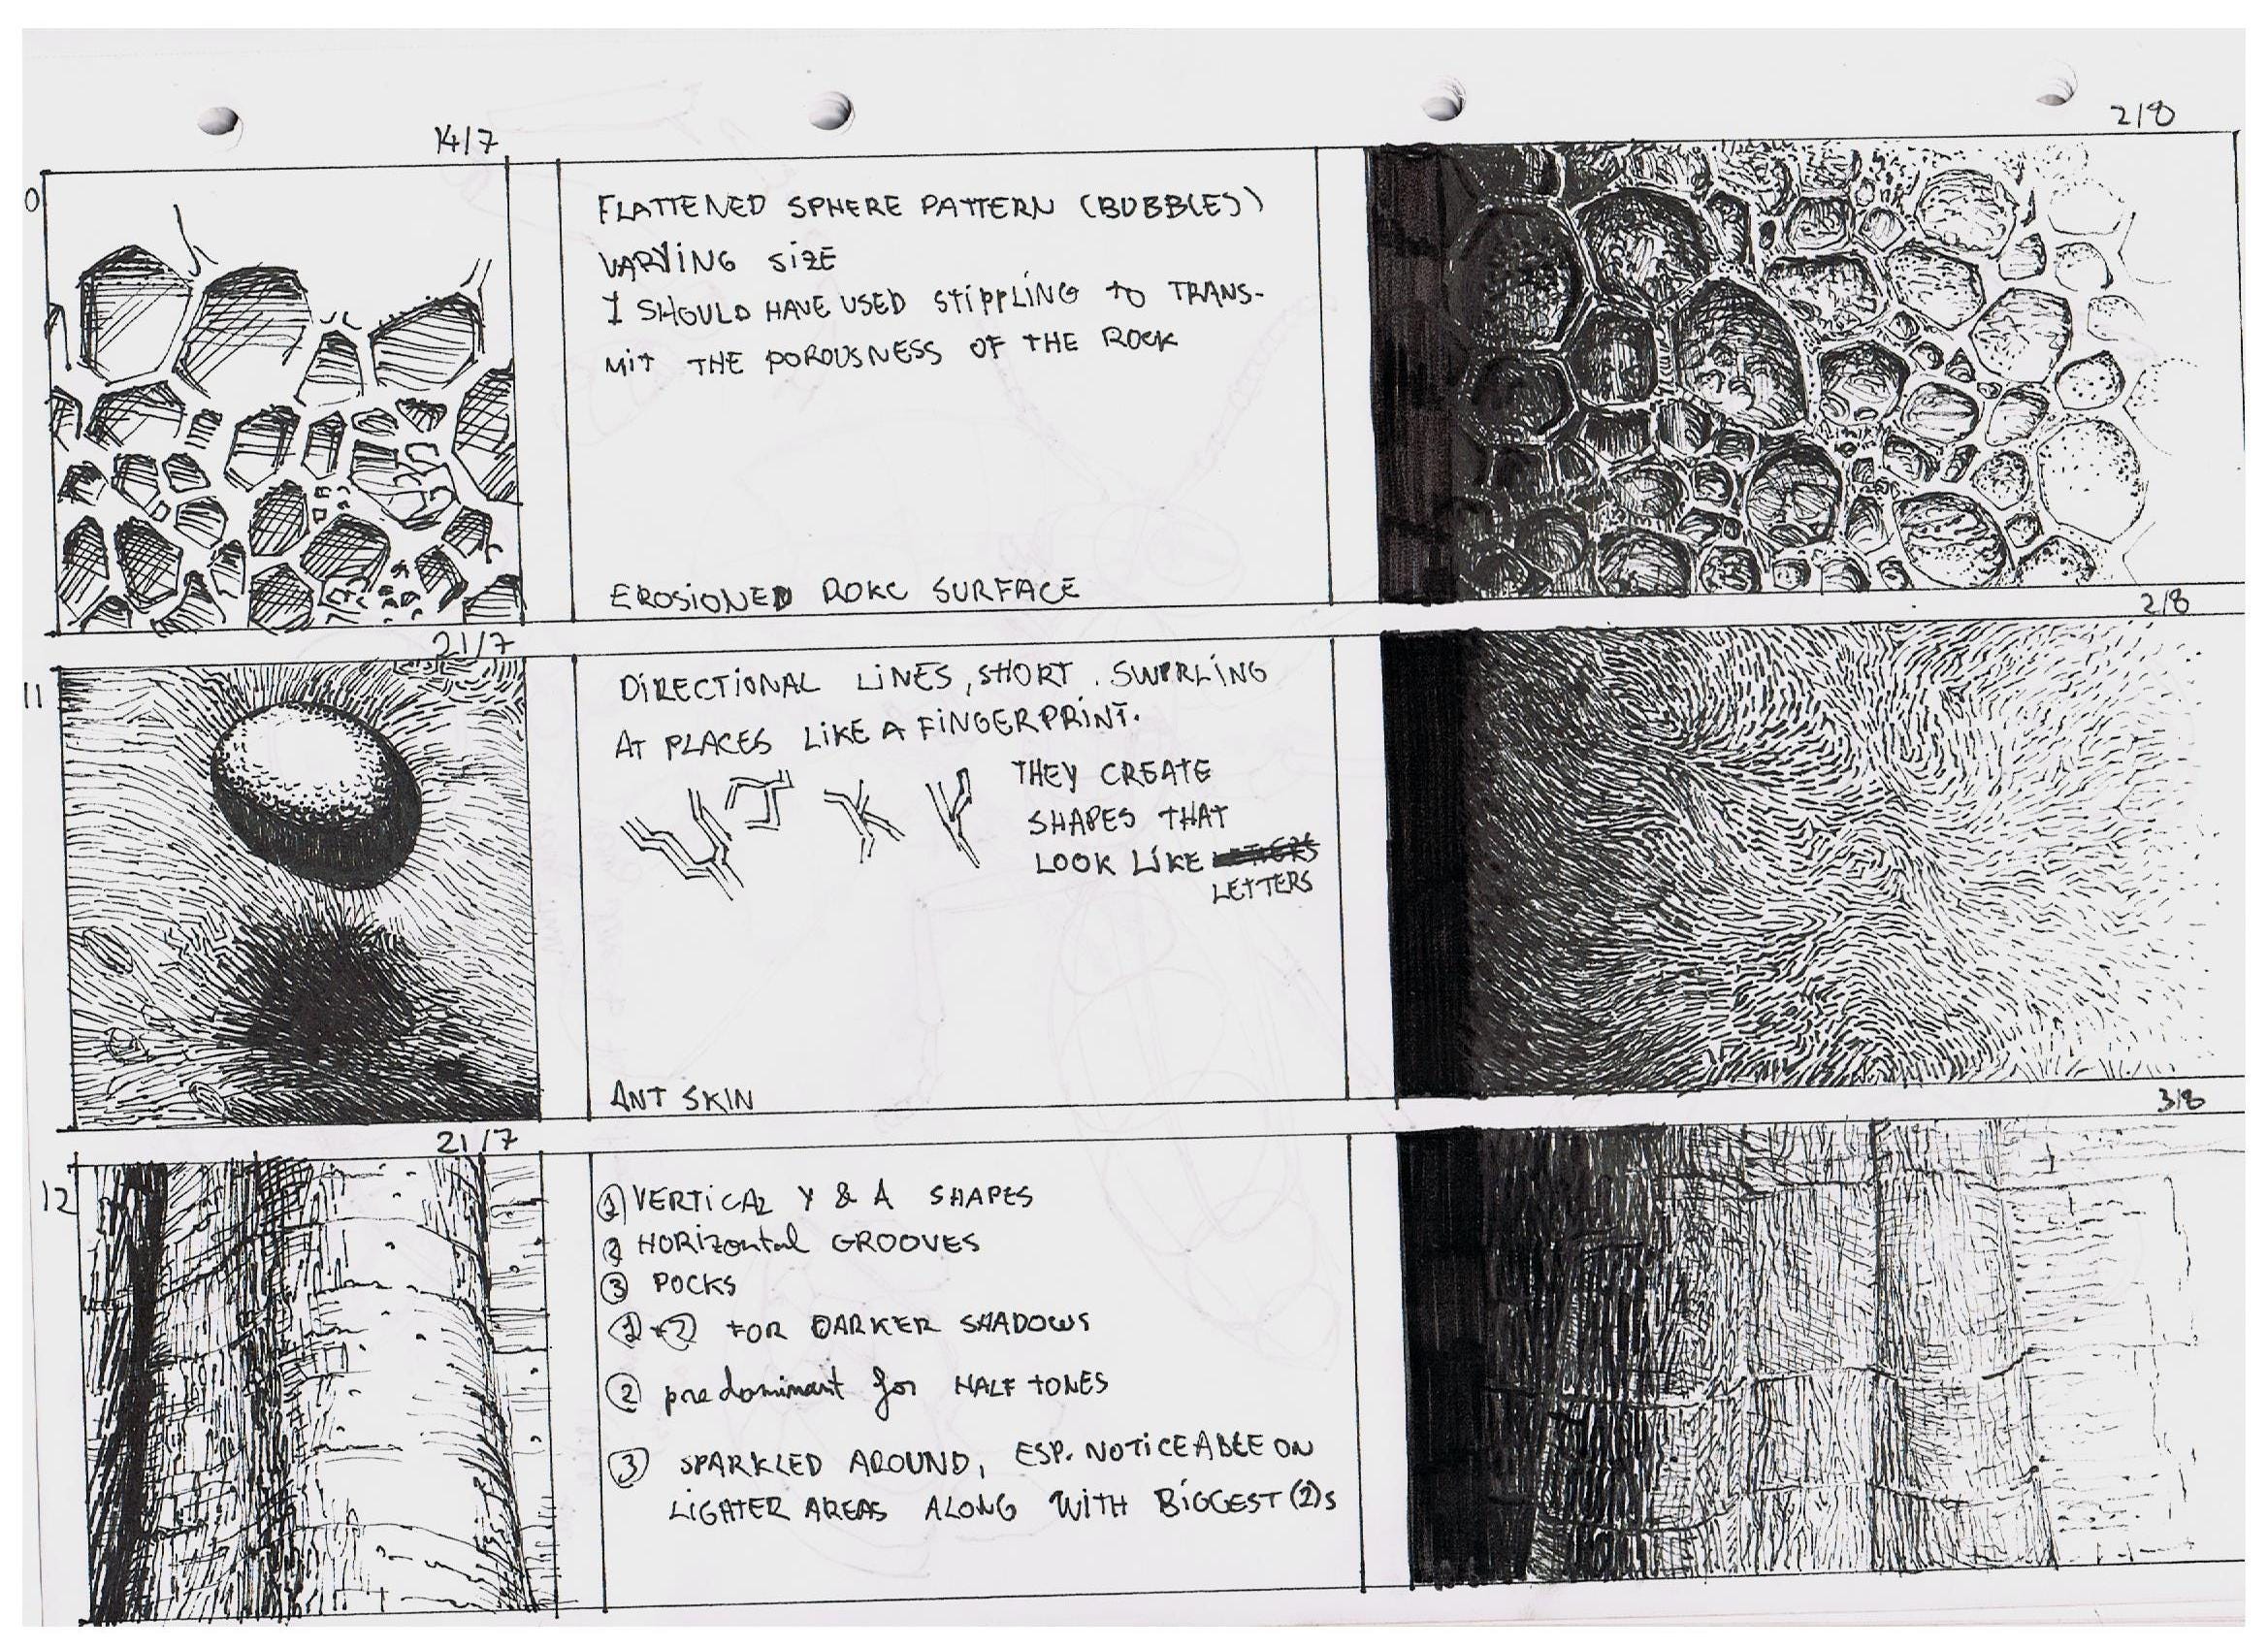 14/7
2/8
0
FLATTENED SPHERE PATTERN (BUBBLES)
VARYING SIZE
I SHOULD HAVE USED STIPPLING TO TRANS-
MIT THE POROUSNESS OF THE ROCK
EROSIONED ROKC SURFACE
21/7
2/8
11
DIRECTIONAL LINES, SHORT. SWIRLING
AT PLACES LIKE A FINGERPRINT.
THEY CREATE
SHAPES THAT
LOOK LIKE
LETTERS
ANT SKIN
21/7
3/8
12
① VERTICAL Y & A SHAPES
② HORIZontal GROOVES
③ POCKS
①+② FOR DARKER SHADOWS
② predominant for HALF TONES
③ SPARKLED AROUND, ESP. NOTICEABLE ON
LIGHTER AREAS ALONG WITH BIGGEST (2)s